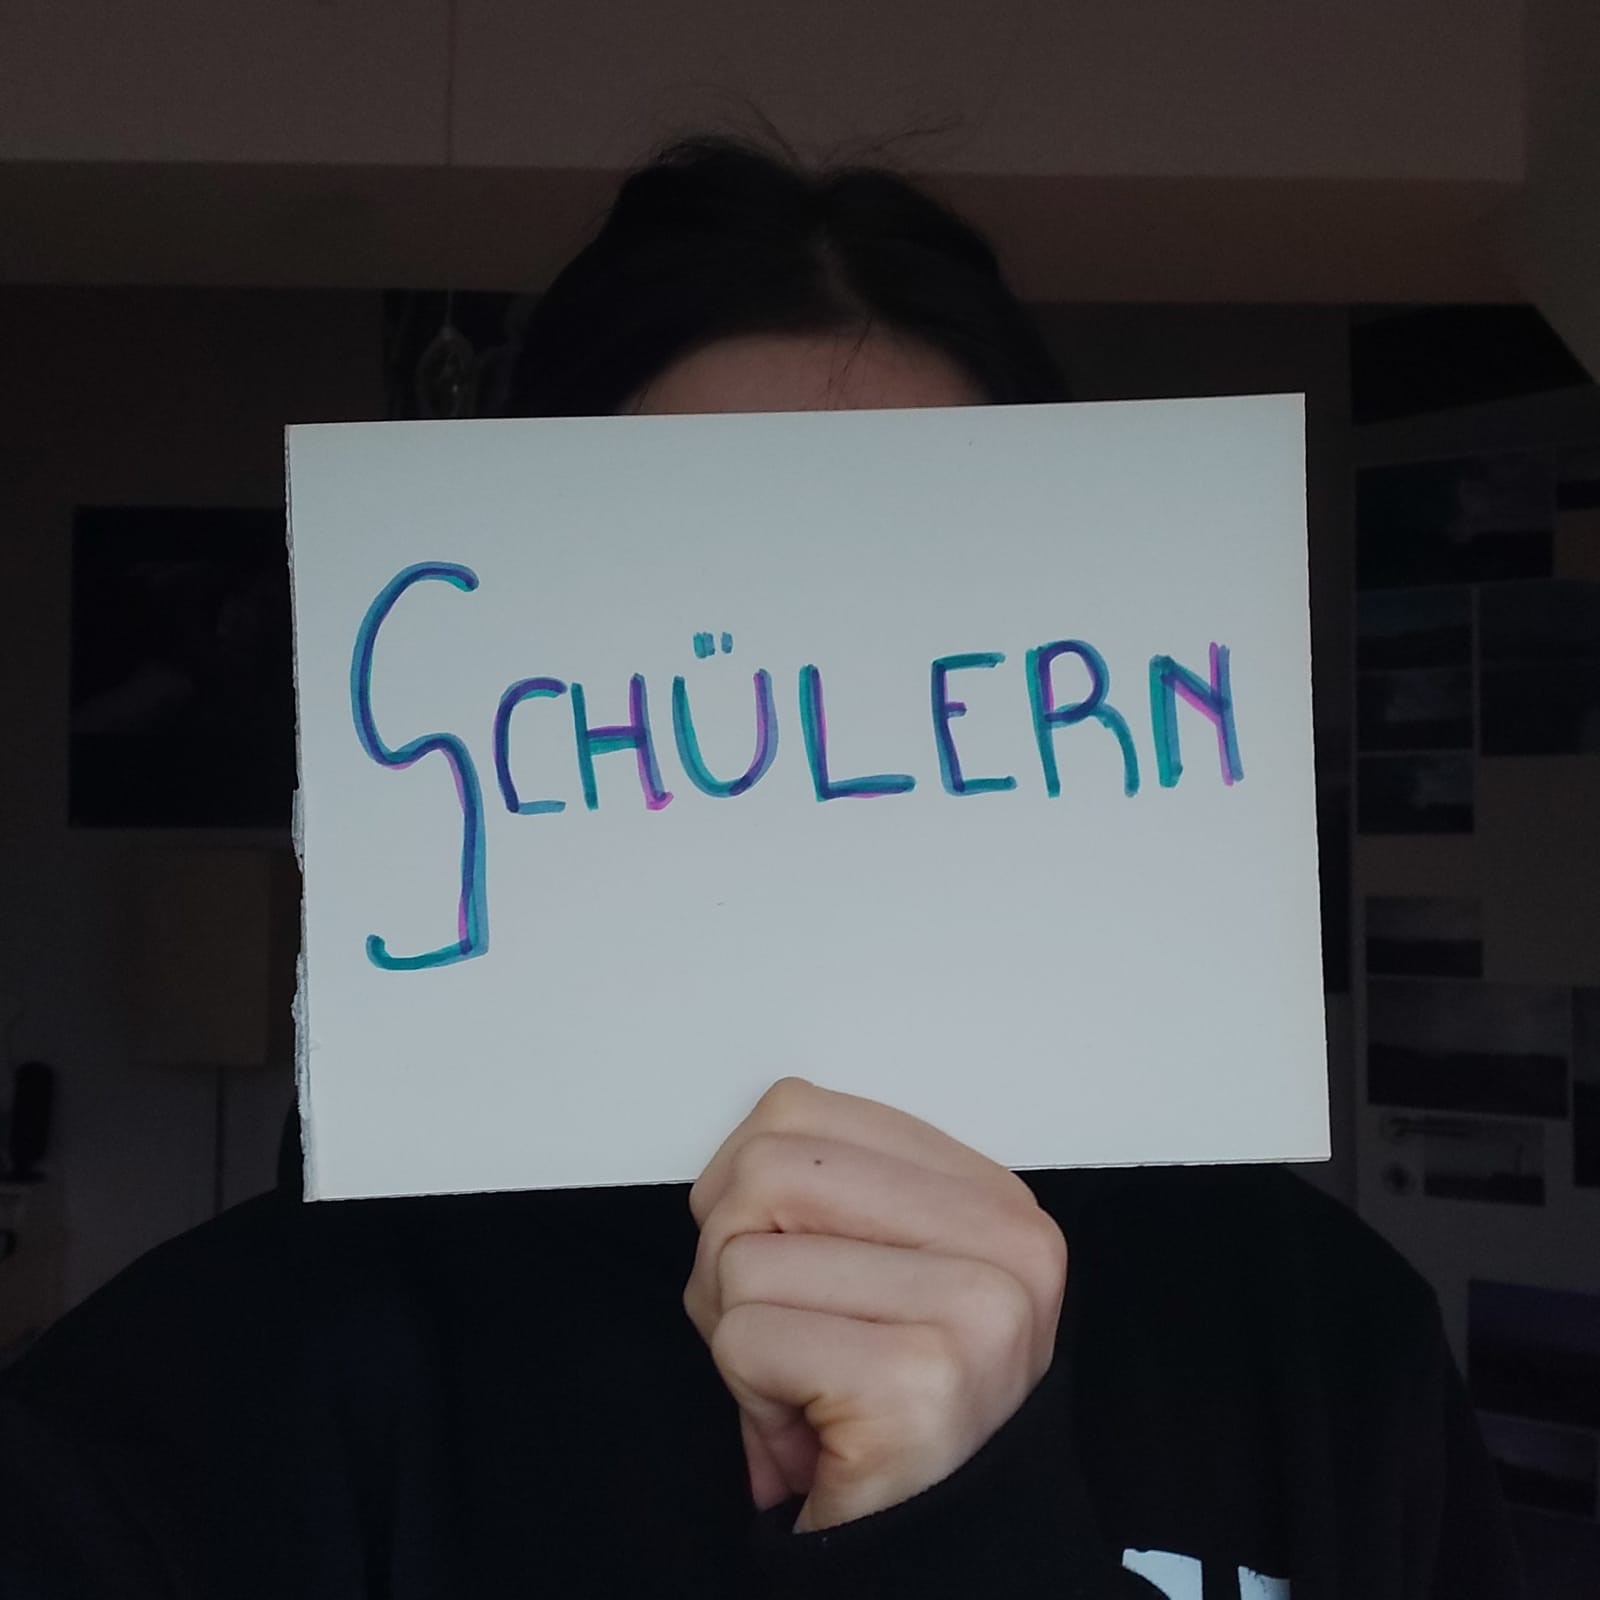 SCHÜLERN